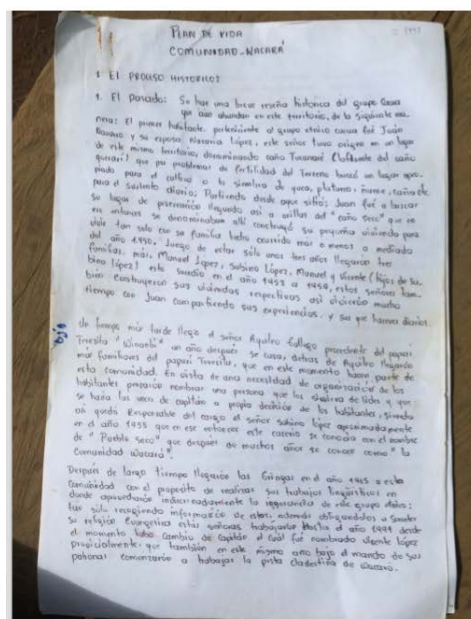 PLAN DE VIDA
COMUNIDAD - WACARÁ
1 EL PROCESO HISTORICO:
1. El Pasado: Se hace una breve reseña histórica del grupo
que aun abundan en este territorio, de la siguiente ma-
nera: El primer habitante perteneciente al grupo etnico cacua fué Juan
y su esposa Nazaria López, este señor tuvo origen en un lugar
de este mismo territorio, denominado caño (afluente del caño
) que por problemas de fertilidad del Terreno buscó un lugar apro-
piado para el cultivo o la siembra de yuca, platano, ñame, caña etc
para el sustento diario; Partiendo desde aquí sitio; Juan fué a buscar
su lugar de preservación llegando así a orillas del "caño seco" que en
ese entonces se denominaban allí construyó su pequeña vivienda para
vivir tan solo con su familia hecho ocurrido mas o menos a mediado
del año 1950. Luego de estar sólo unos tres años llegaron tres
familias, más, Manuel López, Sabino López, Manuel y Vicente (hijos de Sa-
bino López) esto sucedio en el año 1953 a 1954, estos señores tam-
bien construyeron sus viviendas respectivas así vivieron mucho
tiempo con Juan compartiendo sus experiencias, y sus que haceres diarios.
un tiempo más tarde llegó el señor Gallego procedente del
Teresita un año después se casa, detras de llegaron
más familiares del Teresita, que en este momento hacen parte de
esta comunidad. En vista de una necesidad de organización de los
habitantes nombrar una persona que los de lider y que
se haría las veces de capitán a propia decisión de los habitantes, siendo
así quedó Responsable del cargo el señor Sabino López aproximadamente
en el año 1955 que en ese entonces este caserio se conocía con el nombre
de "Pueblo seco" que después de muchos años se conoce como "la
Comunidad Wacará".
Después de largo tiempo llegaron las Gringas en el año 1965 a esta
Comunidad con el proposito de realizar sus trabajos lingüísticos en
donde aprovecharon indiscriminadamente la ignorancia de este grupo étnico;
tan sólo recogiendo información de estos, además obligandolos a
su religión Evangelica estas señoras trabajaron Hasta el año desde
el momento hubo cambio de Capitán el cuál fué nombrado Vicente López
provicialmente, que también en este mismo año bajo el mando de sus
patronas comenzaron a trabajar la pista clandestina de Wacará.